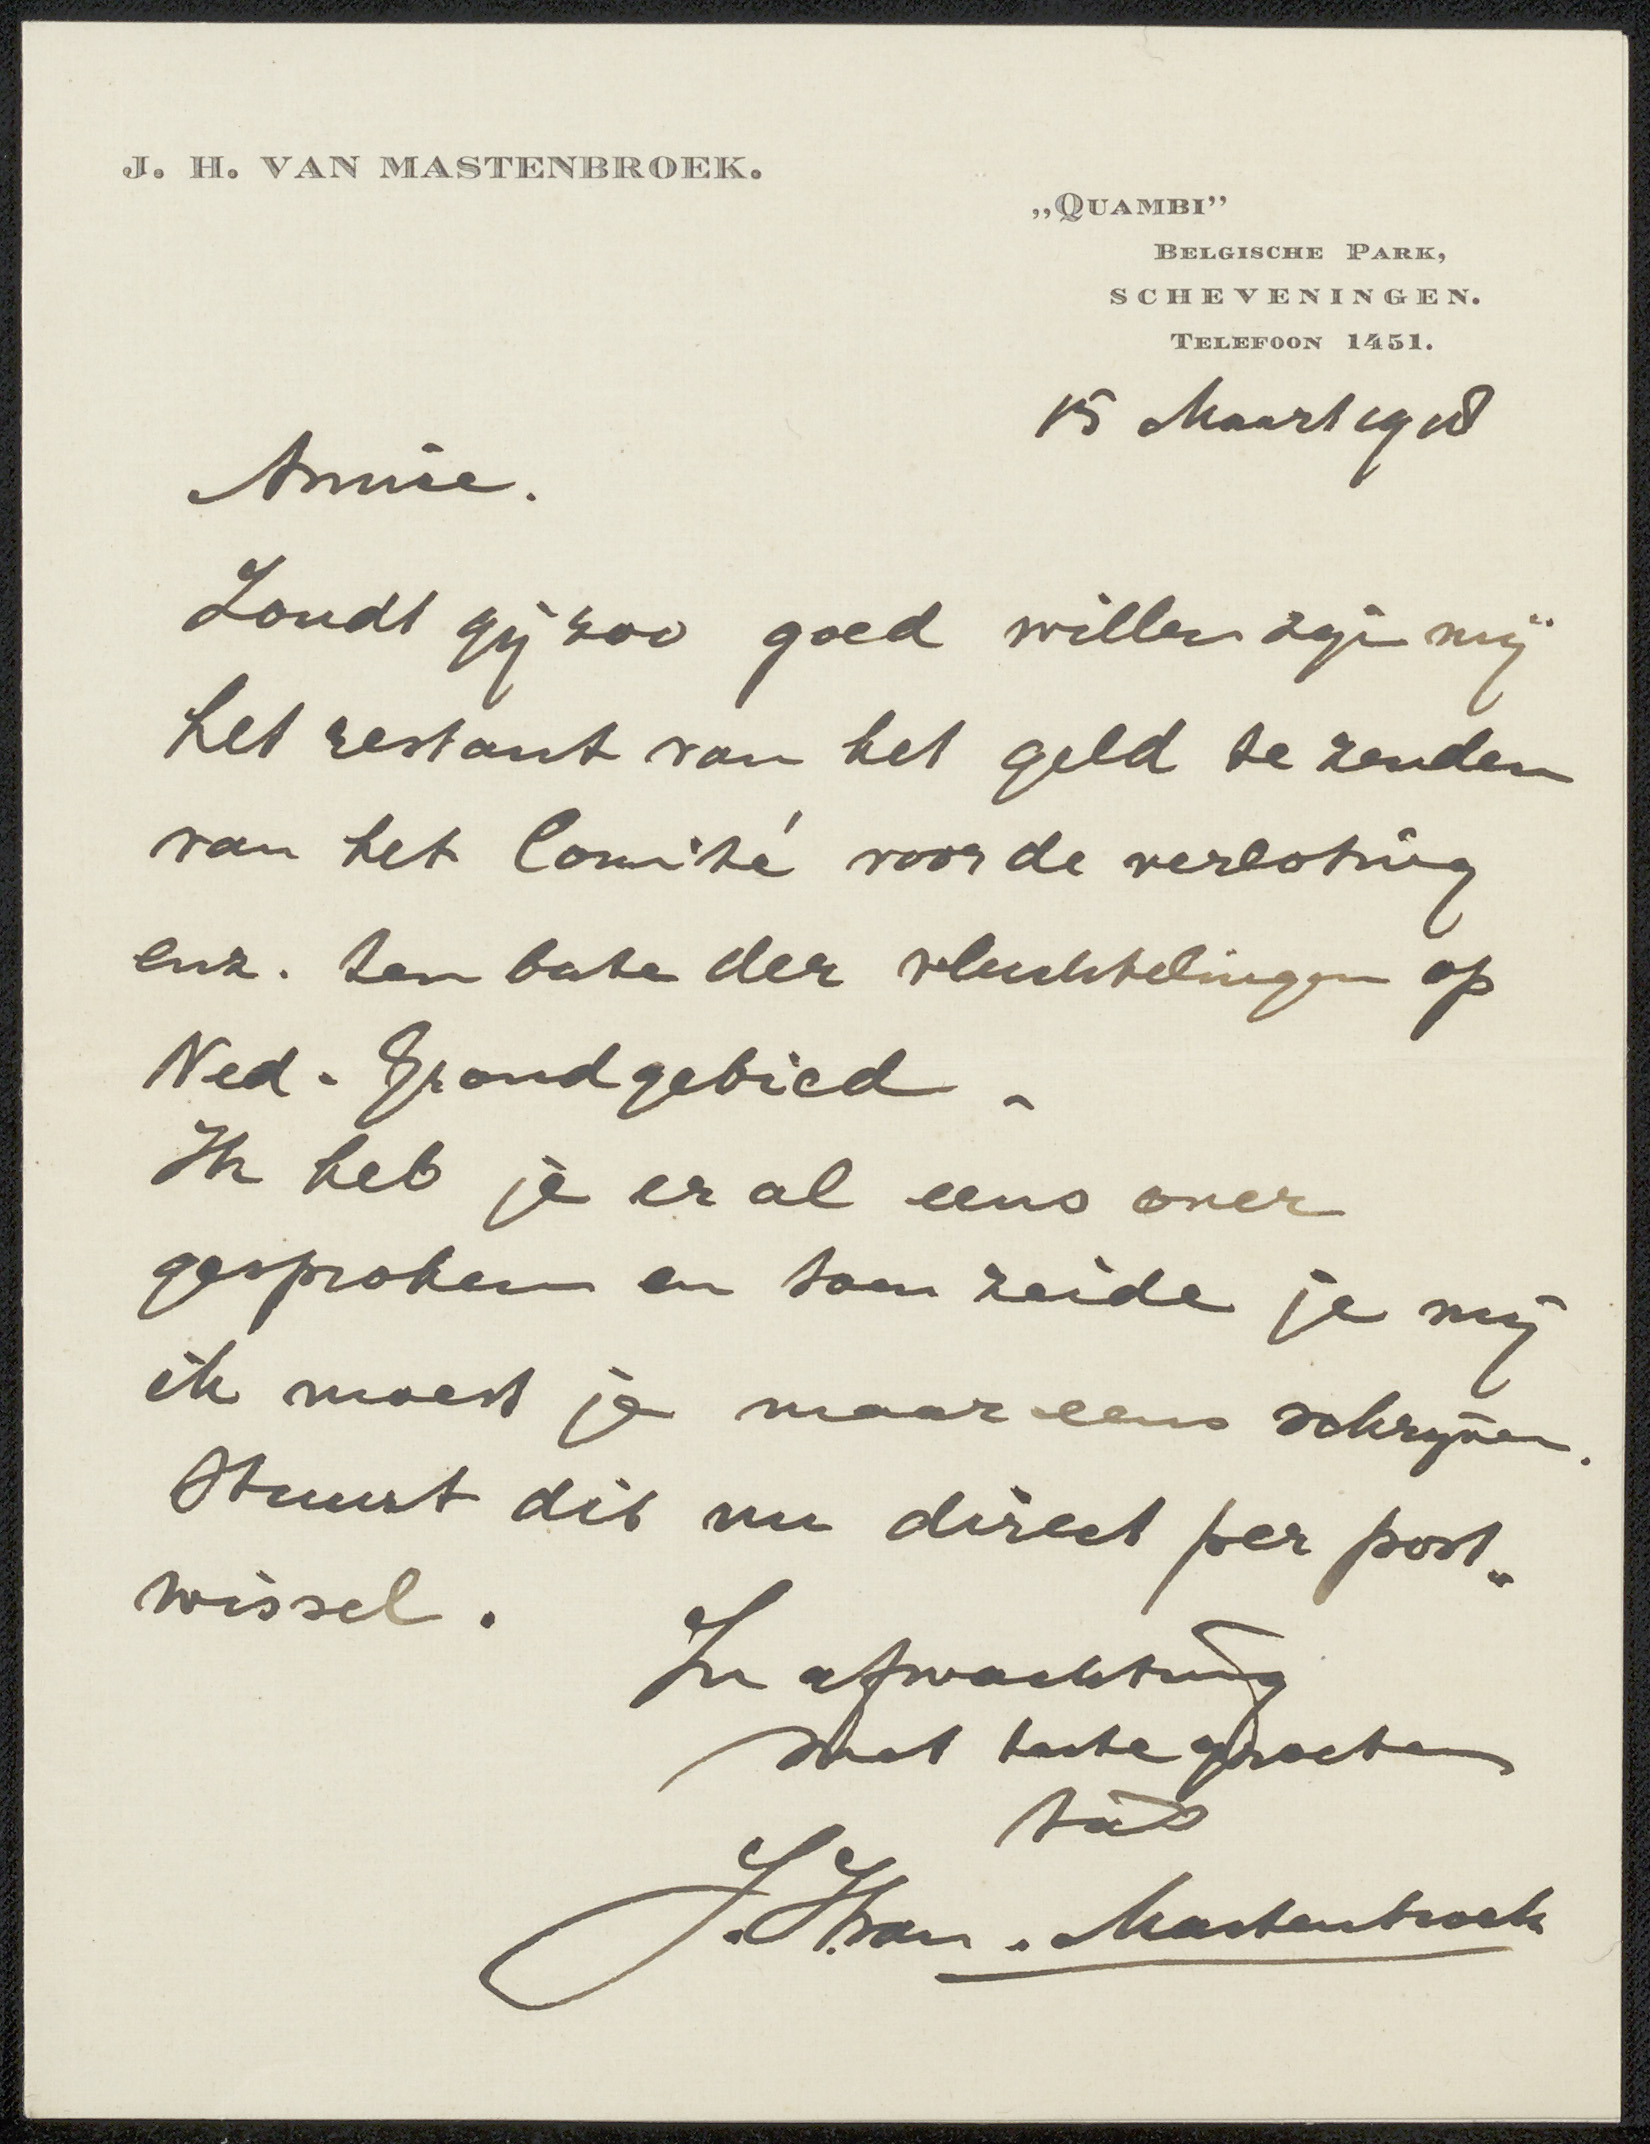 J. H. VAN MASTENBROEK.
„QUAMBI”
BELGISCHE PARK,
SCHEVENINGEN.
TELEFOON 1451.
15 Maart 1918
Amice.
Zoudt gij zoo goed willen zijn mij
het restant van het geld te zenden
van het Comité voor de verloting
enz. ten bate der vluchtelingen op
Ned. Grondgebied.
Ik heb je er al eens over
gesproken en toen zeide je mij
ik moest je maar eens schrijven.
Stuurt dit nu direct per post-
wissel.
In afwachting
met beste groeten
tàv
J. H. van Mastenbroek